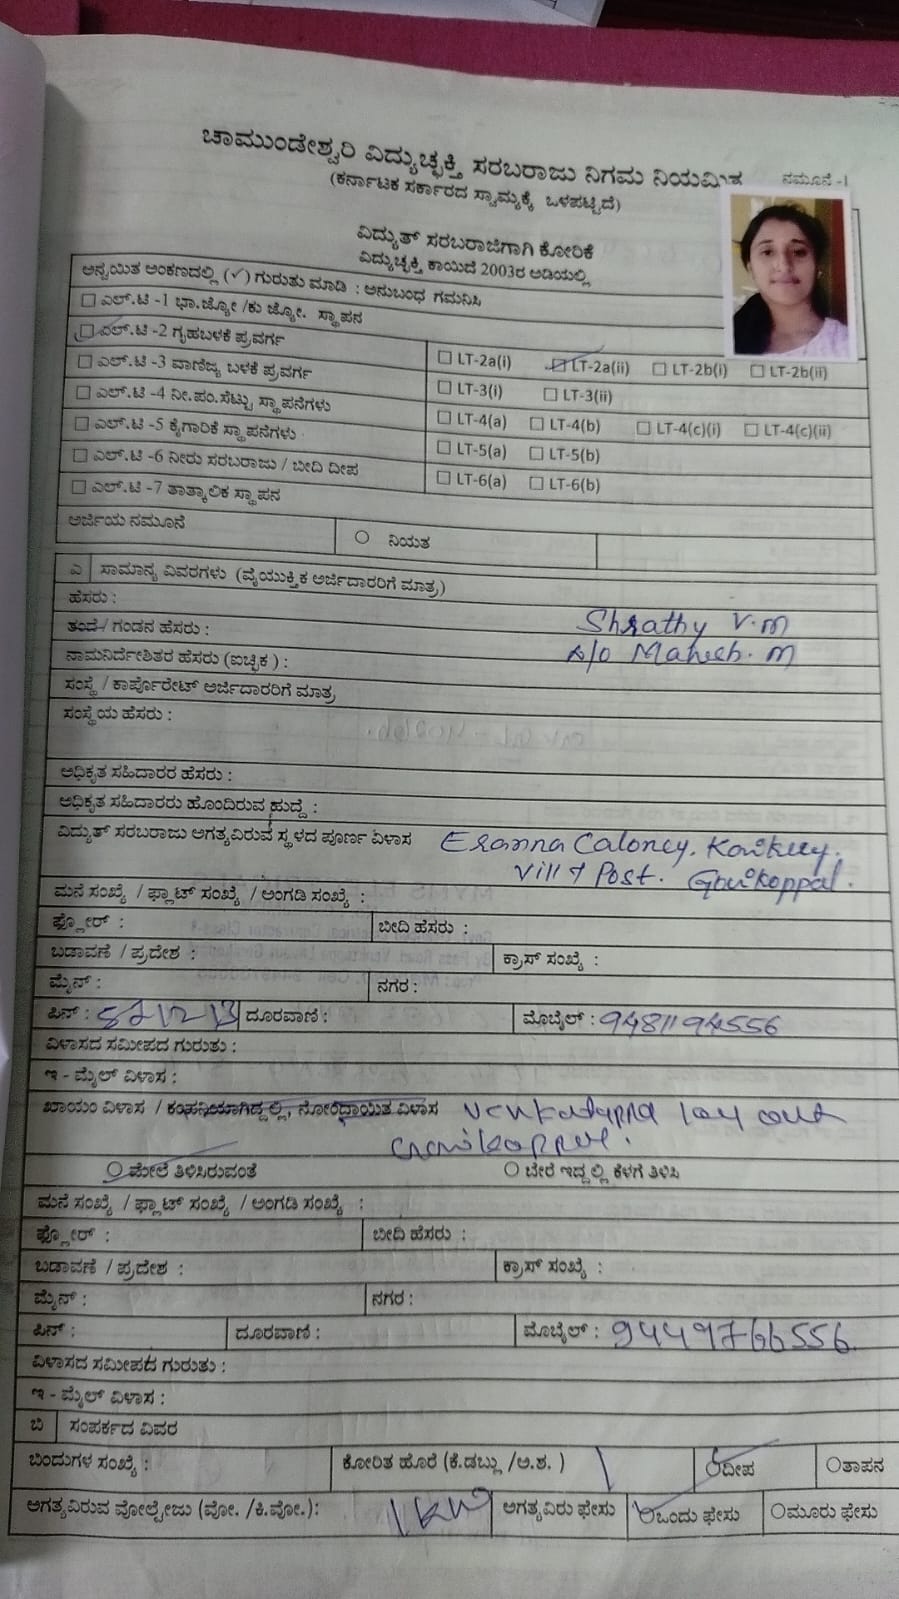 ಚಾಮುಂಡೇಶ್ವರಿ ವಿದ್ಯುಚ್ಛಕ್ತಿ ಸರಬರಾಜು ನಿಗಮ ನಿಯಮಿತ
ನಮೂನೆ -1
(ಕರ್ನಾಟಕ ಸರ್ಕಾರದ ಸ್ವಾಮ್ಯಕ್ಕೆ ಒಳಪಟ್ಟಿದೆ)
ವಿದ್ಯುತ್ ಸರಬರಾಜಿಗಾಗಿ ಕೋರಿಕೆ
ವಿದ್ಯುಚ್ಛಕ್ತಿ ಕಾಯಿದೆ 2003ರ ಅಡಿಯಲ್ಲಿ
ಅನ್ವಯಿತ ಅಂಕಣದಲ್ಲಿ (✓) ಗುರುತು ಮಾಡಿ : ಅನುಬಂಧ ಗಮನಿಸಿ
☐ ಎಲ್.ಟಿ -1 ಭಾ.ಜ್ಯೋ /ಕು ಜ್ಯೋ. ಸ್ಥಾಪನ
☐ ಎಲ್.ಟಿ -2 ಗೃಹಬಳಕೆ ಪ್ರವರ್ಗ ☐ LT-2a(i) ☐ LT-2a(ii) ☐ LT-2b(i) ☐ LT-2b(ii)
☐ ಎಲ್.ಟಿ -3 ವಾಣಿಜ್ಯ ಬಳಕೆ ಪ್ರವರ್ಗ ☐ LT-3(i) ☐ LT-3(ii)
☐ ಎಲ್.ಟಿ -4 ನೀ.ಪಂ.ಸೆಟ್ಟು ಸ್ಥಾಪನೆಗಳು ☐ LT-4(a) ☐ LT-4(b) ☐ LT-4(c)(i) ☐ LT-4(c)(ii)
☐ ಎಲ್.ಟಿ -5 ಕೈಗಾರಿಕೆ ಸ್ಥಾಪನೆಗಳು ☐ LT-5(a) ☐ LT-5(b)
☐ ಎಲ್.ಟಿ -6 ನೀರು ಸರಬರಾಜು / ಬೀದಿ ದೀಪ ☐ LT-6(a) ☐ LT-6(b)
☐ ಎಲ್.ಟಿ -7 ತಾತ್ಕಾಲಿಕ ಸ್ಥಾಪನ
ಅರ್ಜಿಯ ನಮೂನೆ ○ ನಿಯತ
ಎ ಸಾಮಾನ್ಯ ವಿವರಗಳು (ವೈಯುಕ್ತಿಕ ಅರ್ಜಿದಾರರಿಗೆ ಮಾತ್ರ)
ಹೆಸರು : Shrathy V.M
ತಂದೆ / ಗಂಡನ ಹೆಸರು : Mahesh. M
ನಾಮನಿರ್ದೇಶಿತರ ಹೆಸರು (ಐಚ್ಛಿಕ ) :
ಸಂಸ್ಥೆ / ಕಾರ್ಪೊರೇಟ್ ಅರ್ಜಿದಾರರಿಗೆ ಮಾತ್ರ
ಸಂಸ್ಥೆಯ ಹೆಸರು :
ಅಧಿಕೃತ ಸಹಿದಾರರ ಹೆಸರು :
ಅಧಿಕೃತ ಸಹಿದಾರರು ಹೊಂದಿರುವ ಹುದ್ದೆ :
ವಿದ್ಯುತ್ ಸರಬರಾಜು ಅಗತ್ಯವಿರುವ ಸ್ಥಳದ ಪೂರ್ಣ ವಿಳಾಸ Eranna Caloney.
Vill & Post.
ಮನೆ ಸಂಖ್ಯೆ / ಫ್ಲಾಟ್ ಸಂಖ್ಯೆ / ಅಂಗಡಿ ಸಂಖ್ಯೆ :
ಫ್ಲೋರ್ : ಬೀದಿ ಹೆಸರು :
ಬಡಾವಣೆ / ಪ್ರದೇಶ : ಕ್ರಾಸ್ ಸಂಖ್ಯೆ :
ಮೈನ್ : ನಗರ :
ಪಿನ್ : 571213 ದೂರವಾಣಿ : ಮೊಬೈಲ್ : 9481194556
ವಿಳಾಸದ ಸಮೀಪದ ಗುರುತು :
ಇ - ಮೈಲ್ ವಿಳಾಸ :
ಖಾಯಂ ವಿಳಾಸ / ಕಂಪನಿಯಾಗಿದ್ದಲ್ಲಿ, ನೋಂದಾಯಿತ ವಿಳಾಸ Venkatappa lay out
○ ಮೇಲೆ ತಿಳಿಸಿರುವಂತೆ ○ ಬೇರೆ ಇದ್ದಲ್ಲಿ ಕೆಳಗೆ ತಿಳಿಸಿ
ಮನೆ ಸಂಖ್ಯೆ / ಫ್ಲಾಟ್ ಸಂಖ್ಯೆ / ಅಂಗಡಿ ಸಂಖ್ಯೆ :
ಫ್ಲೋರ್ : ಬೀದಿ ಹೆಸರು :
ಬಡಾವಣೆ / ಪ್ರದೇಶ : ಕ್ರಾಸ್ ಸಂಖ್ಯೆ :
ಮೈನ್ : ನಗರ :
ಪಿನ್ : ದೂರವಾಣಿ : ಮೊಬೈಲ್ : 9449766556
ವಿಳಾಸದ ಸಮೀಪದ ಗುರುತು :
ಇ - ಮೈಲ್ ವಿಳಾಸ :
ಬಿ ಸಂಪರ್ಕದ ವಿವರ
ಬಿಂದುಗಳ ಸಂಖ್ಯೆ : ಕೋರಿತ ಹೊರೆ (ಕೆ.ಡಬ್ಲು /ಅ.ಶ. ) ○ದೀಪ ○ತಾಪನ
ಅಗತ್ಯವಿರುವ ವೋಲ್ಟೇಜು (ವೋ. /ಕಿ.ವೋ.): 1KW ಅಗತ್ಯವಿರು ಫೇಸು ○ಒಂದು ಫೇಸು ○ಮೂರು ಫೇಸು